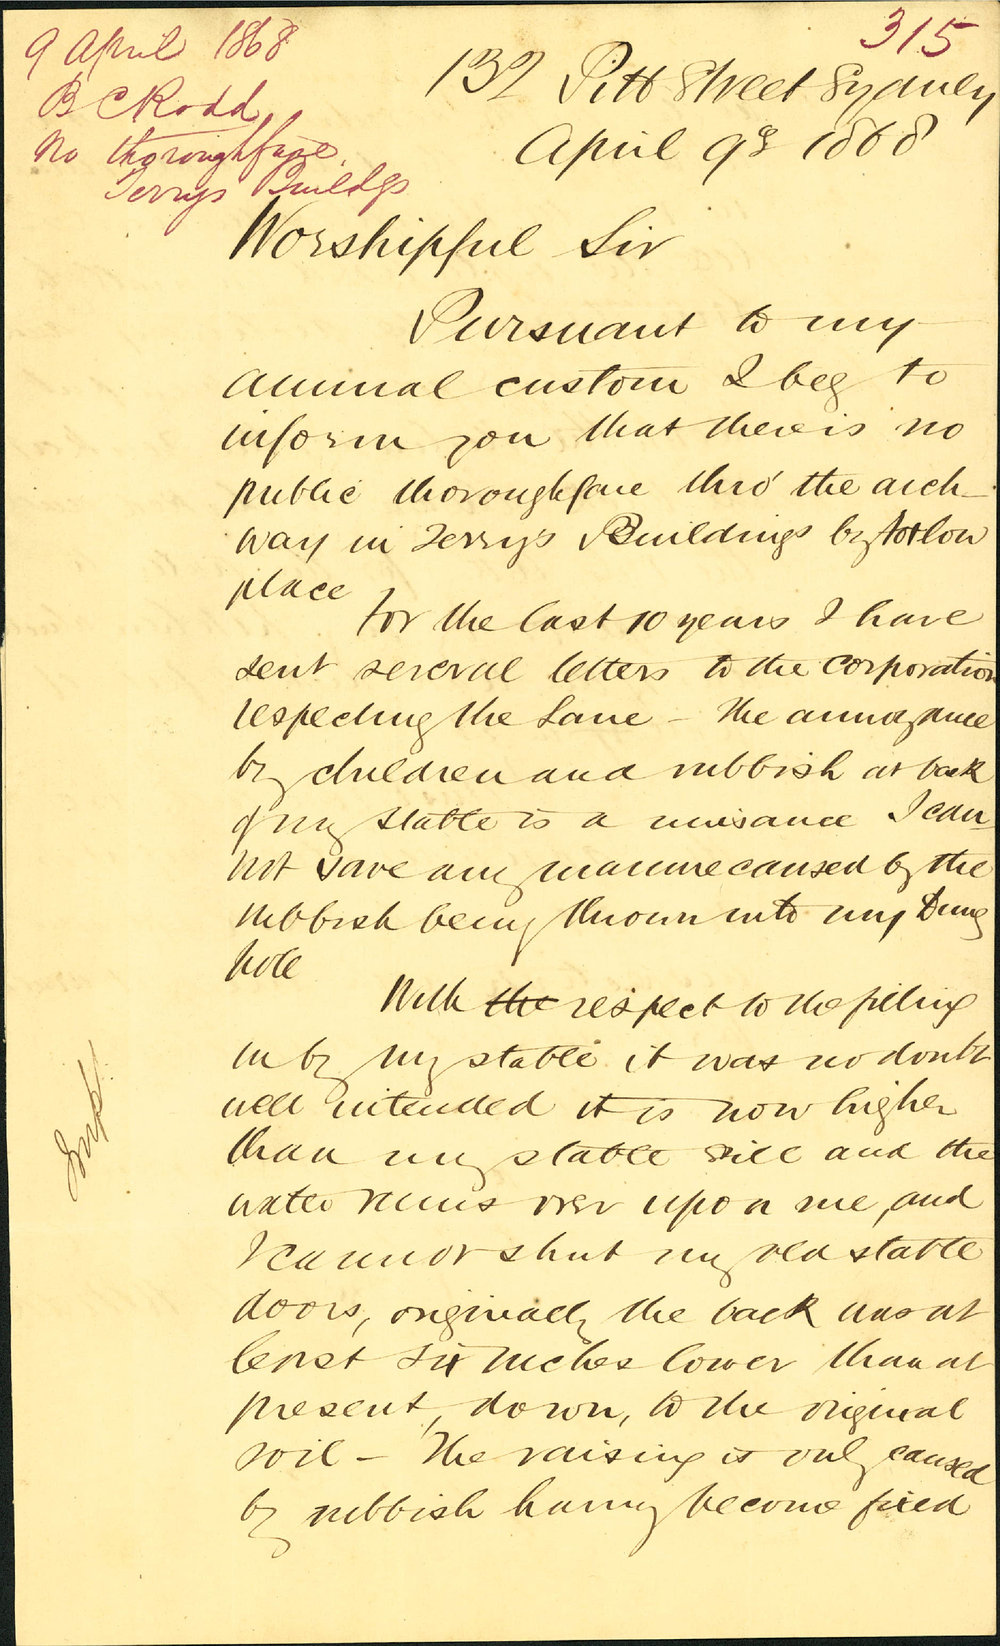 315
9 April 1868
B C Rodd
No thoroughfare
Terrys Buildgs
132 Pitt Street Sydney
April 9th 1868
Worshipful Sir
Pursuant to my
annual custom I beg to
inform you that there is no
public thoroughfare thro' the arch-
way in Terry's Buildings by
place
For the last 10 years I have
sent several letters to the corporation
respecting the Lane - The annoyance
by children and rubbish at back
of my stable is a nuisance I can
not save any manure caused by the
rubbish being thrown into my Dung
hole
With the respect to the filling
in by my stable it was no doubt
well intended it is now higher
than my stable sill and the
water runs over upon me, and
I cannot shut my old stable
doors, originally the back was at
least six inches lower than at
present, down, to the original
soil - The raising is only caused
by rubbish having become fixed